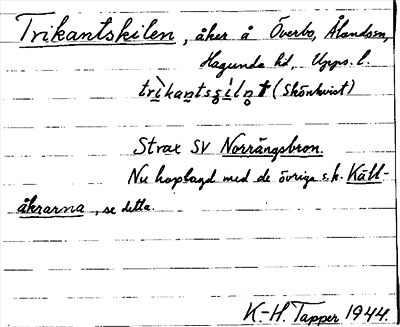 Trikantskilen, åker å Överbo, Ålandssn,
Hagunda hd, Upps. l.
(Skönkvist)
Strax SV Norrängsbron.
Nu hoplagd med de övriga s.k. Käll-
åkrarna, se detta.
K.-H. Tapper 1944.